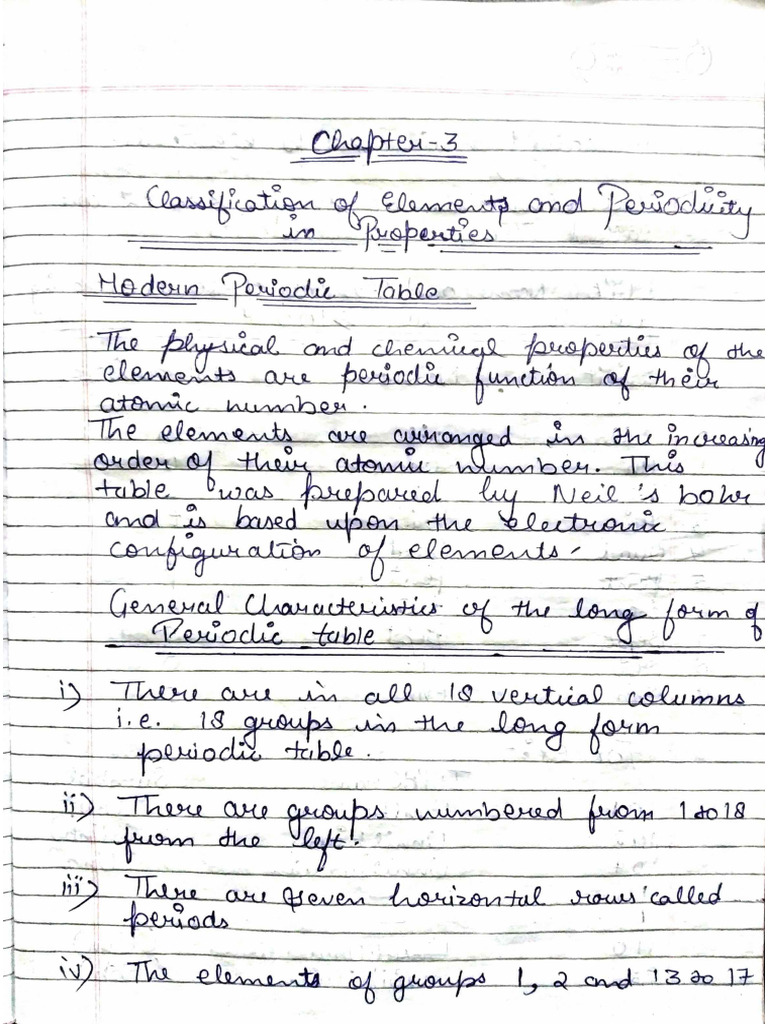 Chapter-3
Classification of Elements and Periodicity
in Properties
Modern Periodic Table
The physical and chemical properties of the
elements are periodic function of their
atomic number.
The elements are arranged in the increasing
order of their atomic number. This
table was prepared by Neil's bohr
and is based upon the electronic
configuration of elements.
General Characteristics of the long form of
Periodic table
i) There are in all 18 vertical columns
i.e. 18 groups in the long form
periodic table.
ii) There are groups numbered from 1 to 18
from the left.
iii) There are seven horizontal rows called
periods
iv) The elements of groups 1, 2 and 13 to 17